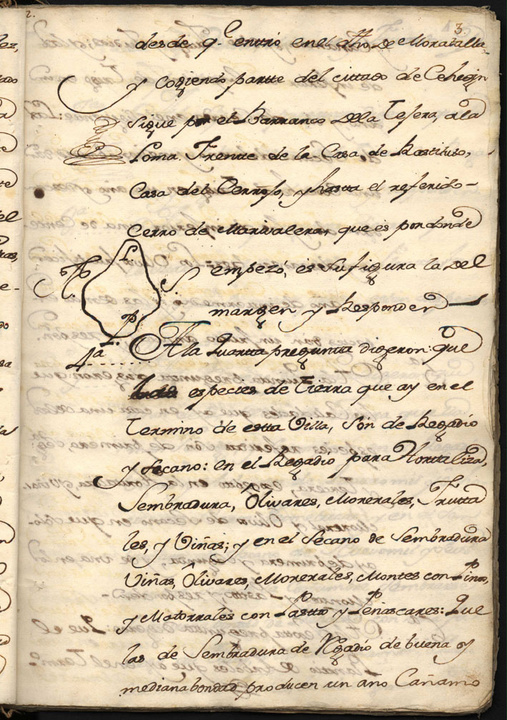 3.
desde qe. entrò, en el dho. de Moratalla
y Cogiendo parte del citado de Cehegin
sigue por el Barranco de la Tesera, a la
Loma, Frente de la Casa de
Casa del Cerrojo, y hasta el referido-
Cerro de que es por donde
empezó, es su figura la del
margen, y Responden
A la quarta pregunta digeron: que
4ª
especies de Tierra que ay en el
Termino de esta Villa, son de Regadio
y Secano: en el Regadio para Hortaliza,
Sembradura, Olivares, Morerales, Frutta
les, y Viñas; y en el Secano de Sembradura
Viñas, Olivares, Morerales, Montes con Pino,
y Matorrales con Pasto y Peñascares: Que
las de Sembradura de Regadio de buena y
mediana bondad producen un año Cañamo